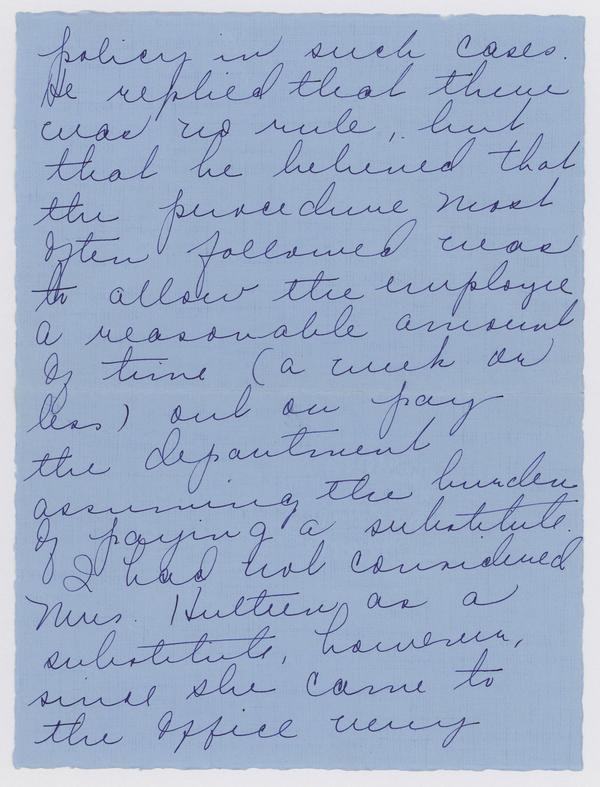 policy in such cases.
He replied that there
was no rule, but
that he believed that
the procedure most
often followed was
to allow the employee
a reasonable amount
of time (a week or
less) out on pay
the department
assuming the burden
of paying a substitute.
I had not considered
Mrs. Hultien as a
substitute, however,
since she came to
the Office very